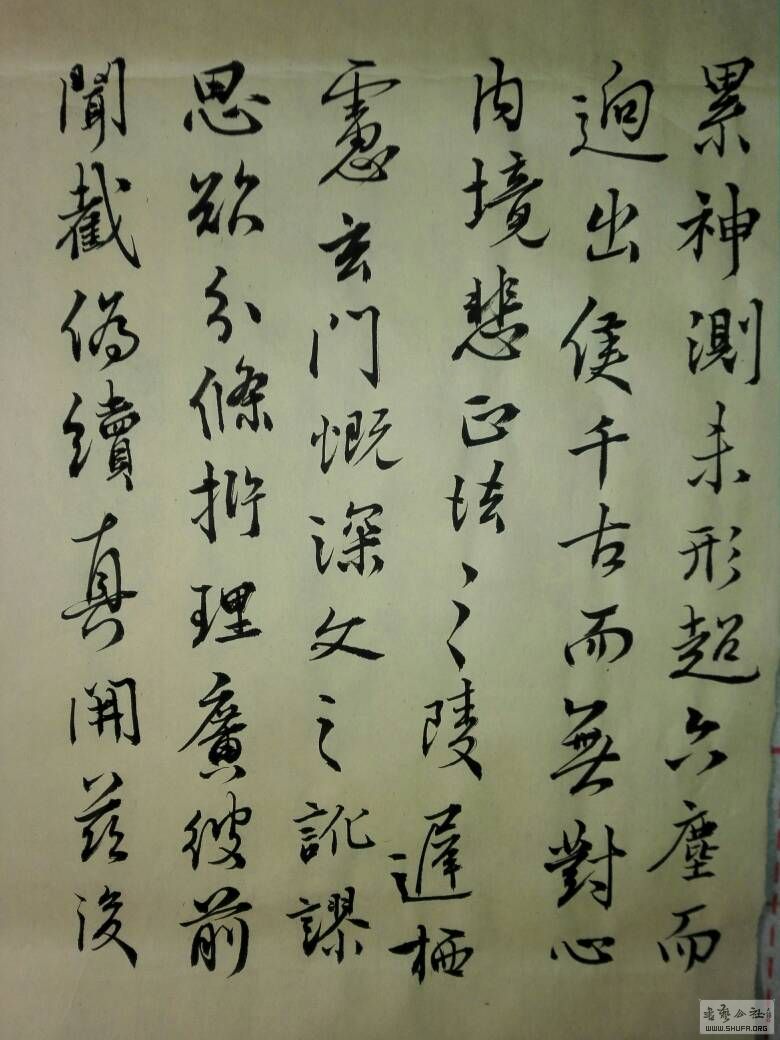 累神測未形超六塵而
迥出隻千古而無對凝心
內境悲正法之陵遲栖
慮玄門慨深文之訛謬
思欲分條析理廣彼前
聞截偽續真開茲後
書藝公社
WWW.SHUFA.ORG